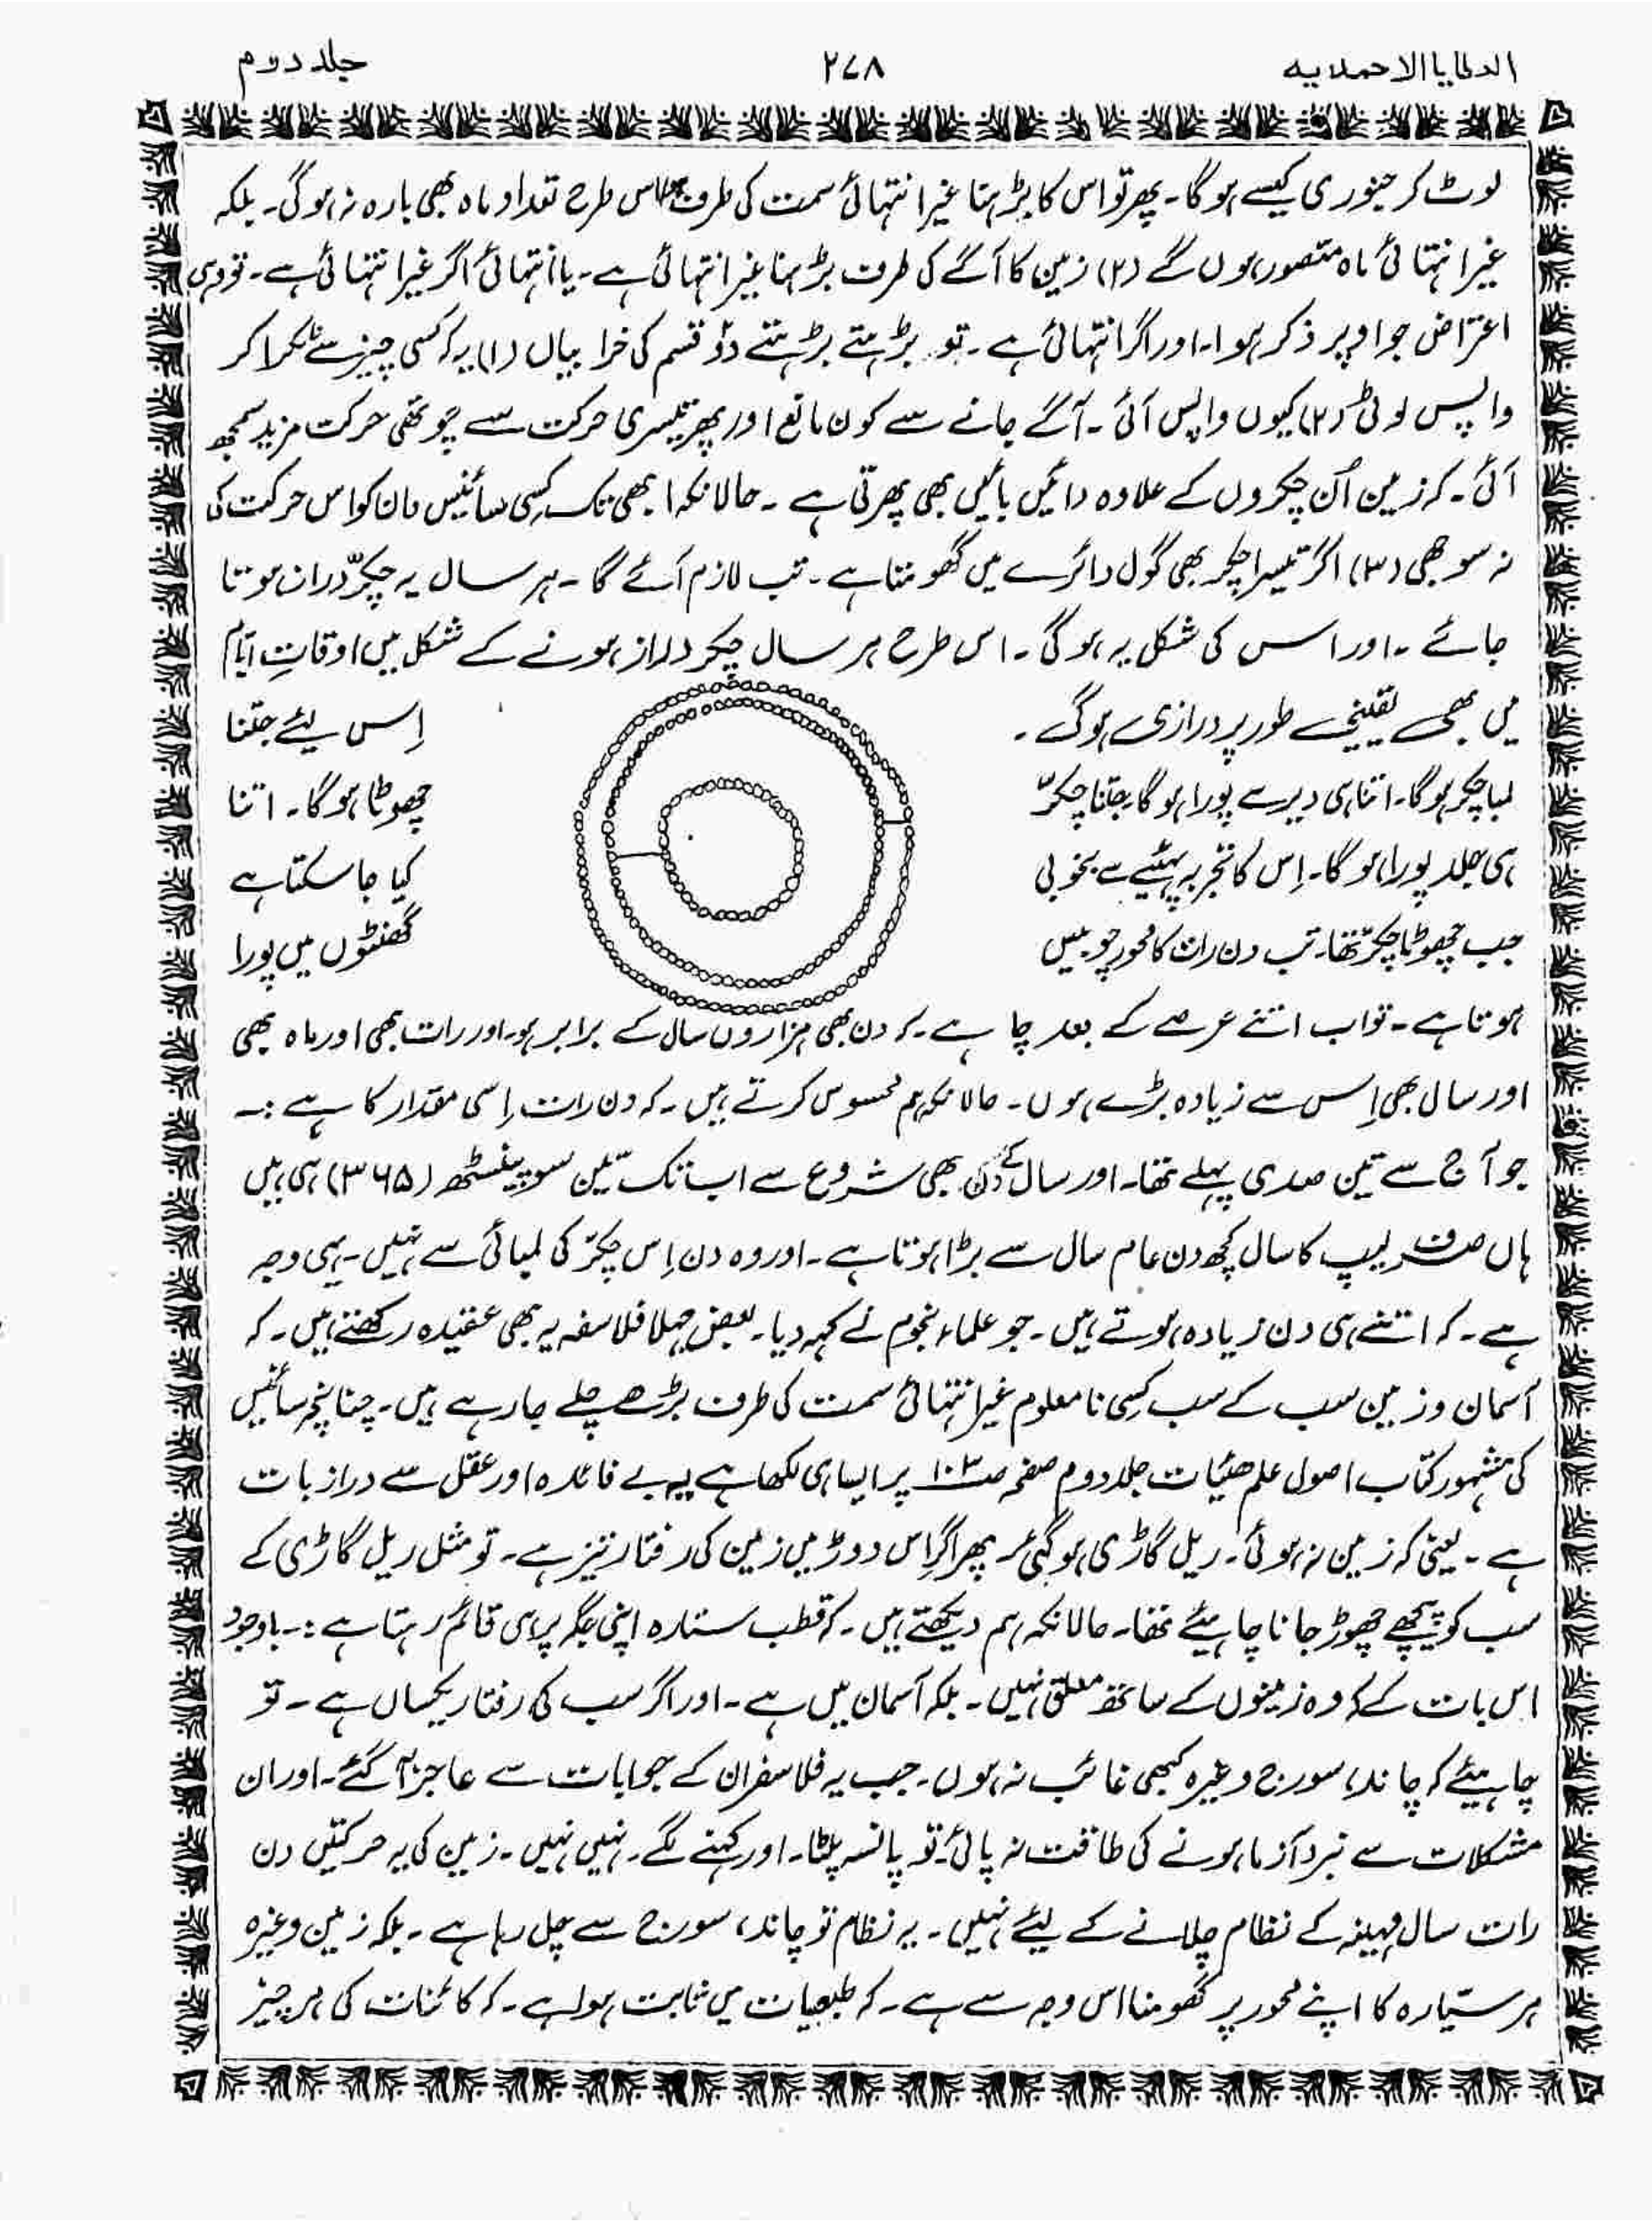 العطایا الاحمدیہ ۲۷۸ جلد دوم
لوٹ کر جنوری کیسے ہوگا۔ پھر تو اس کا بڑہنا غیر انتہائی سمت کی طرف اس طرح تعداد ماہ بھی بارہ نہ ہوگی۔ بلکہ
غیر انتہائی ماہ متصور ہوں گے (۲) زمین کا آگے کی طرف بڑہنا غیر انتہائی ہے۔ یا انتہائی اگر غیر انتہائی ہے۔ تو وہی
اعتراض جو اوپر ذکر ہوا۔ اور اگر انتہائی ہے۔ تو بڑہتے بڑہتے دو قسم کی خرابیاں (۱) یہ کہ کسی چیز سے ٹکرا کر
واپس لوٹی (۲) کیوں واپس آئی۔ آگے جانے سے کون مانع اور پھر تیسری حرکت سے چوتھی حرکت مزید سمجھ
آئی۔ کہ زمین اُن چکروں کے علاوہ دائیں بائیں بھی پھرتی ہے۔ حالانکہ ابھی تک کسی سائنس دان کو اس حرکت کی
نہ سوجھی (۳) اگر تیسرا چکر بھی گول دائرے میں گھومنا ہے۔ تب لازم آئے گا۔ ہر سال یہ چکّر دراز ہوتا
جائے۔ اور اس کی شکل یہ ہوگی۔ اس طرح ہر سال چکر دراز ہونے کے شکل میں اوقاتِ ایّام
میں بھی یقینی طور پر درازی ہوگی۔ اِس لیئے جتنا
لمبا چکر ہوگا۔ اتنا ہی دیر سے پورا ہوگا۔ جتنا چکرّ چھوٹا ہوگا۔ اتنا
ہی جلد پورا ہوگا۔ اِس کا تجربہ پہئیے سے بخوبی کیا جا سکتا ہے
جب چھوٹا چکرّ تھا۔ تب دن رات کا محور چوبیس گھنٹوں میں پورا
ہوتا ہے۔ تو اب اتنے عرصے کے بعد چاہے۔ کہ دن بھی ہزاروں سال کے برابر ہو۔ اور رات بھی اور ماہ بھی
اور سال بھی اِس سے زیادہ بڑے ہوں۔ حالانکہ ہم محسوس کرتے ہیں۔ کہ دن رات اِسی مقدار کا ہے :۔
جو آج سے تین صدی پہلے تھا۔ اور سال کے دن بھی شروع سے اب تک تین سو پینسٹھ (۳۶۵) ہی ہیں
ہاں صرف لیپ کا سال کچھ دن عام سال سے بڑا ہوتا ہے۔ اور وہ دن اِس چکرّ کی لمبائی سے نہیں۔ یہی وجہ
ہے۔ کہ اتنے ہی دن زیادہ ہوتے ہیں۔ جو علماء نجوم نے کہہ دیا۔ بعض جہلا فلاسفہ یہ بھی عقیدہ رکھتے ہیں۔ کہ
آسمان و زمین سب کے سب کسِی نامعلوم غیر انتہائی سمت کی طرف بڑھے چلے جا رہے ہیں۔ چنانچہ سائنس
کی مشہور کتاب اصول علم ھئیات جلد دوم صفحہ ص۱۰۳ پر ایسا ہی لکھا ہے یہ بے فائدہ اور عقل سے دراز بات
ہے۔ یعنی کہ زمین نہ ہوئی۔ ریل گاڑی ہو گئی۔ پھر اگر اِس دوڑ میں زمین کی رفتار تیز ہے۔ تو مثل ریل گاڑی کے
سب کو پیچھے چھوڑ جانا چاہیئے تھا۔ حالانکہ ہم دیکھتے ہیں۔ کہ قطب ستارہ اپنی جگہ پر ہی قائم رہتا ہے :۔ باوجود
اس بات کے کہ وہ زمینوں کے ساتھ معلق نہیں۔ بلکہ آسمان میں ہے۔ اور اگر سب کی رفتار یکساں ہے۔ تو
چاہیئے کہ چاند، سورج وغیرہ کبھی غائب نہ ہوں۔ جب یہ فلاسفر ان کے جوابات سے عاجز آ گئے۔ اور ان
مشکلات سے نبرد آزما ہونے کی طاقت نہ پائی تو پانسہ پلٹا۔ اور کہنے لگے۔ نہیں نہیں۔ زمین کی یہ حرکتیں دن
رات سال مہینہ کے نظام چلانے کے لیئے نہیں۔ یہ نظام تو چاند، سورج سے چل رہا ہے۔ بلکہ زمین وغیرہ
ہر سیّارہ کا اپنے محور پر گھومنا اس وجہ سے ہے۔ کہ طبعیات میں ثابت ہوا ہے۔ کہ کائنات کی ہر چیز